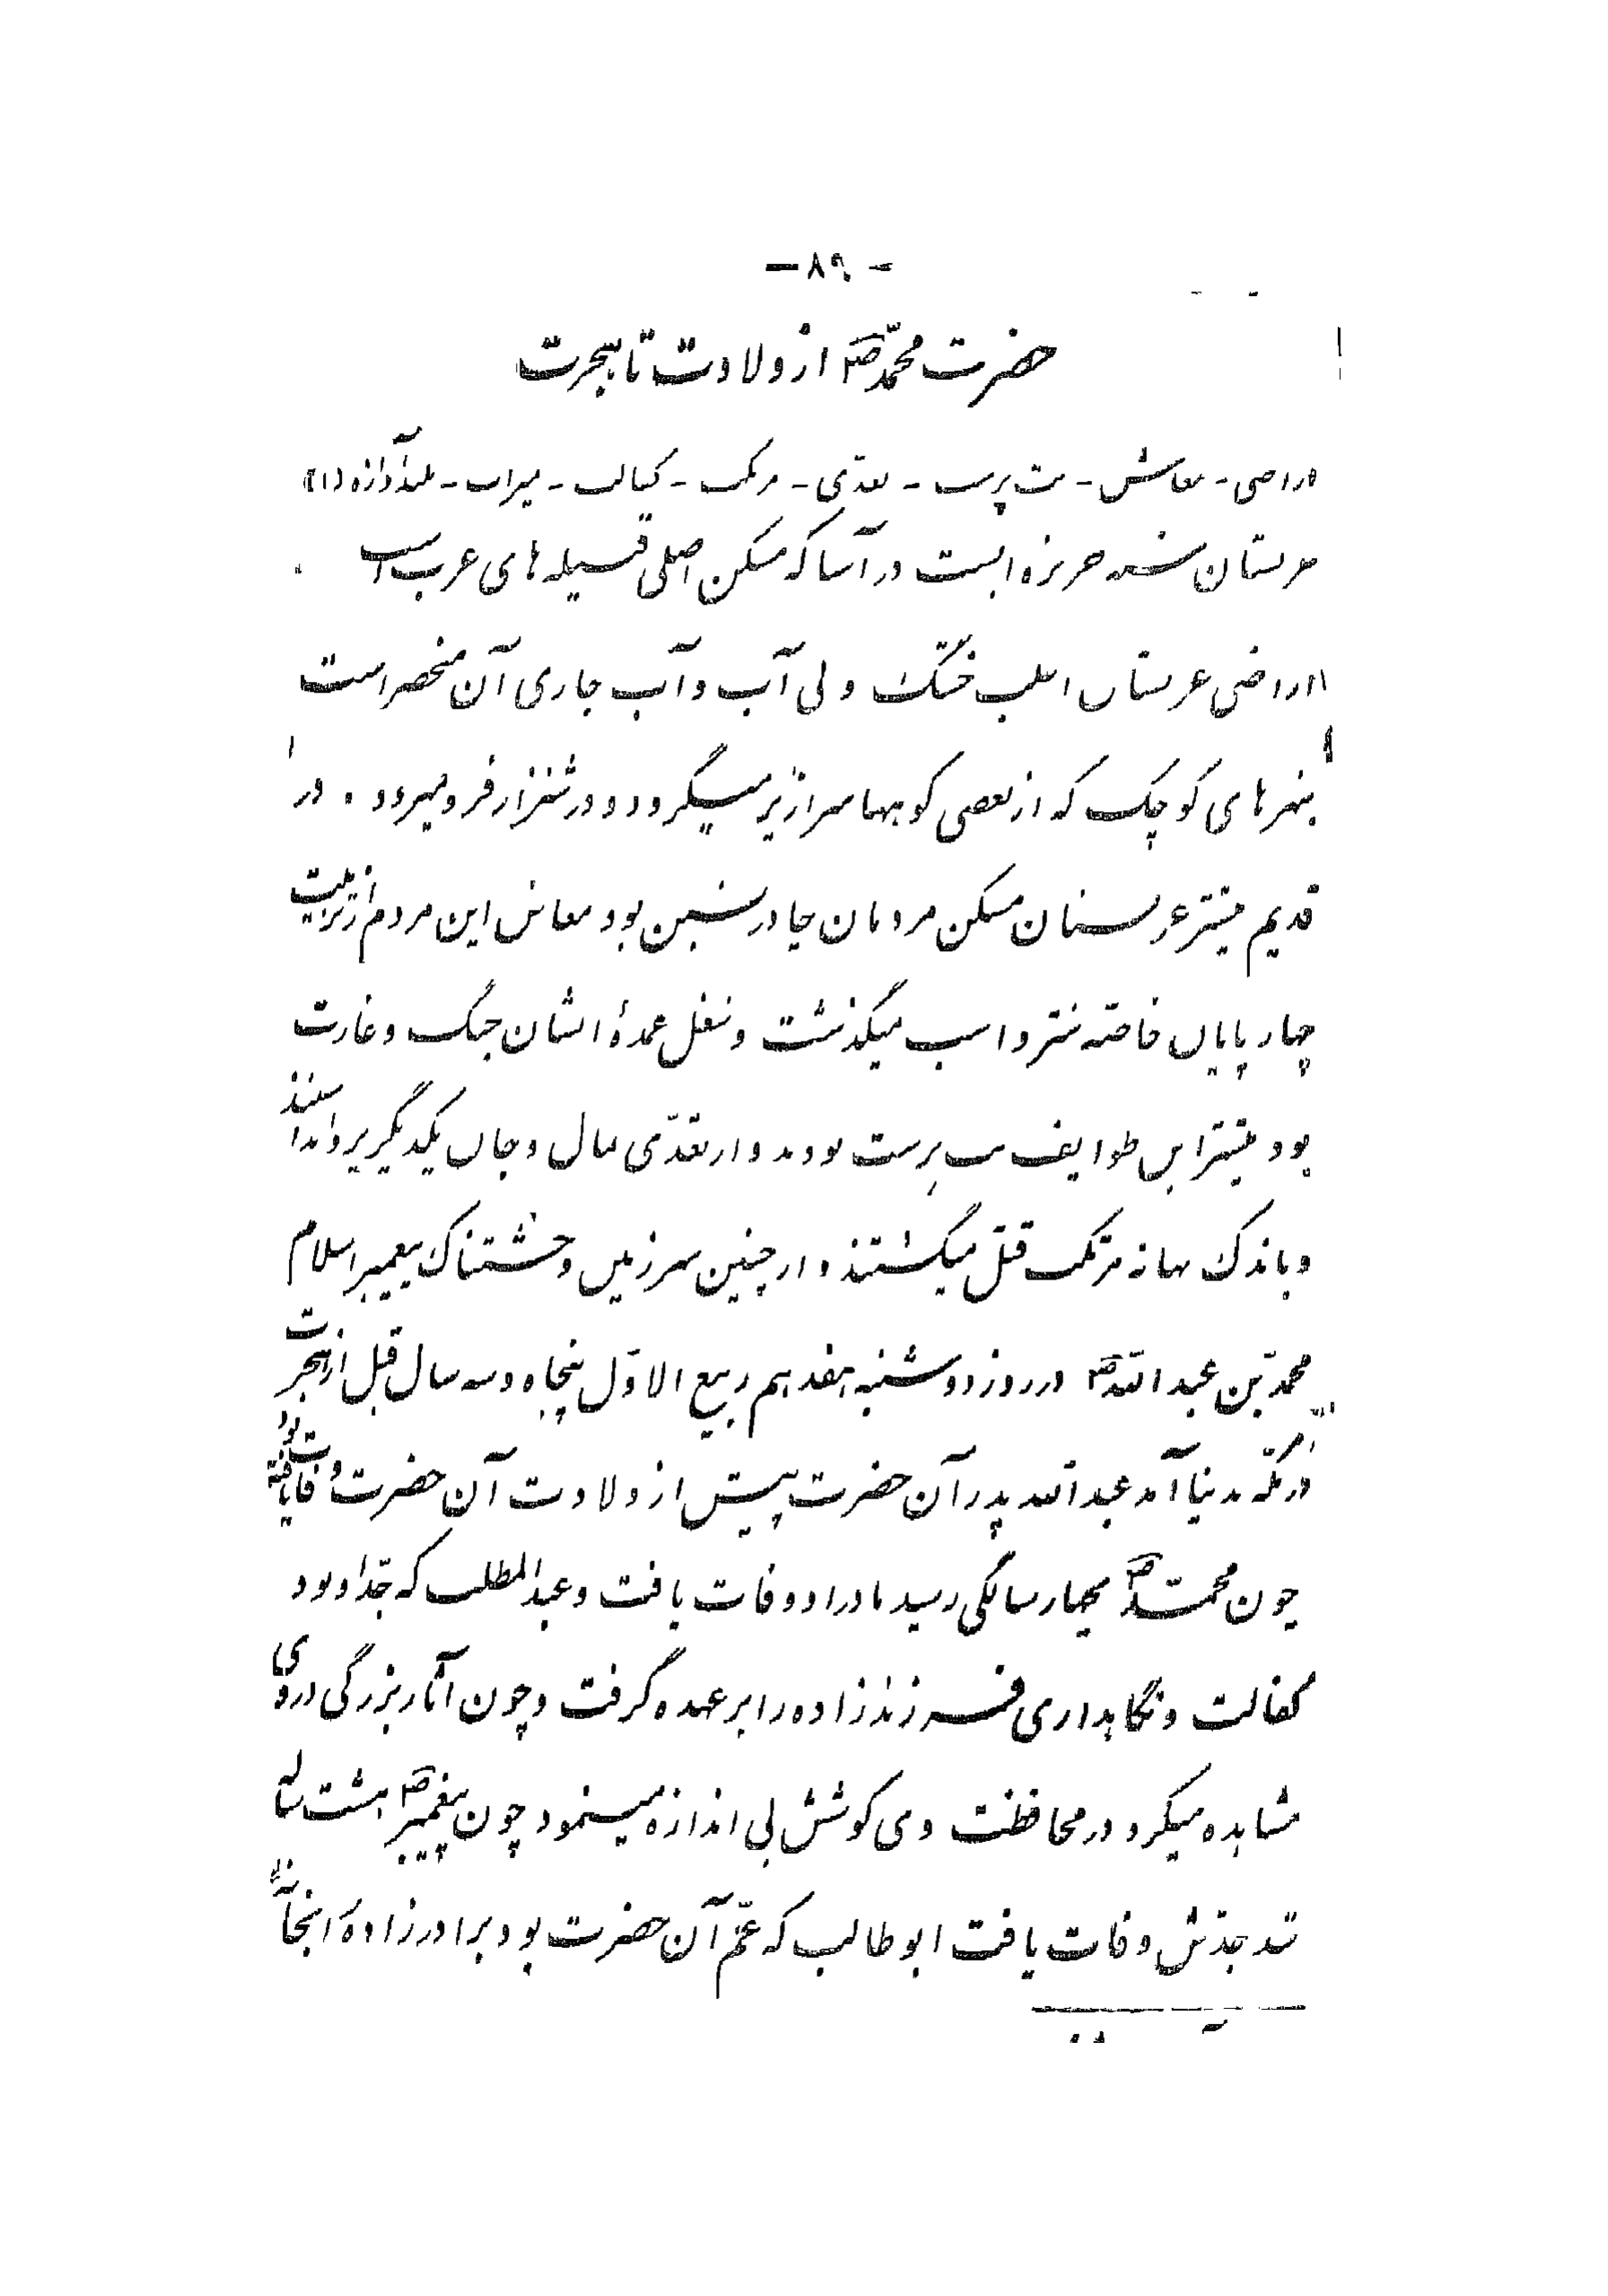 - ۸۹ -
حضرت محمّد ص از ولادت تا هجرت
اراضی - معاش - بت پرست - تعدّی - مرتکب - کفالت - میراث - بلندآوازه (۱)
عربستان شبه جزیره ایست در آسیا که مسکن اصلی قبیله های عرب است
اراضی عربستان اغلب خشک و بی آب و آب جاری آن منحصر است
بنهرهای کوچک که از بعضی کوهها سرازیر میگردد و در شنزار فرو میرود . در
قدیم بیشتر عربستان مسکن مردمان چادرنشین بود معاش این مردم از تربیت
چهارپایان خاصّه شتر و اسب میگذشت و شغل عمدهٔ ایشان جنگ و غارت
بود بیشتر این طوایف بت پرست بودند و از تعدّی بمال و جان یکدیگر پروا نداشتند
و باندک بهانه مرتکب قتل میگشتند و از چنین سرزمین وحشتناک پیغمبر اسلام
محمّد بن عبد اللّه ص در روز دوشنبه هفدهم ربیع الاوّل پنجاه و سه سال قبل از هجرت
در مکّه بدنیا آمد عبد اللّه پدر آن حضرت پیش از ولادت آن حضرت وفات یافته بود
چون محمّد ص بچهار سالگی رسید مادر او وفات یافت و عبد المطلب که جدّ او بود
کفالت و نگاهداری فرزندزاده را بر عهده گرفت و چون آثار بزرگی در وی
مشاهده میکرد در محافظت وی کوشش بی اندازه مینمود چون پیغمبر ص هشت ساله
شد جدّش وفات یافت ابوطالب که عمّ آن حضرت بود برادرزاده را بخانهٔ